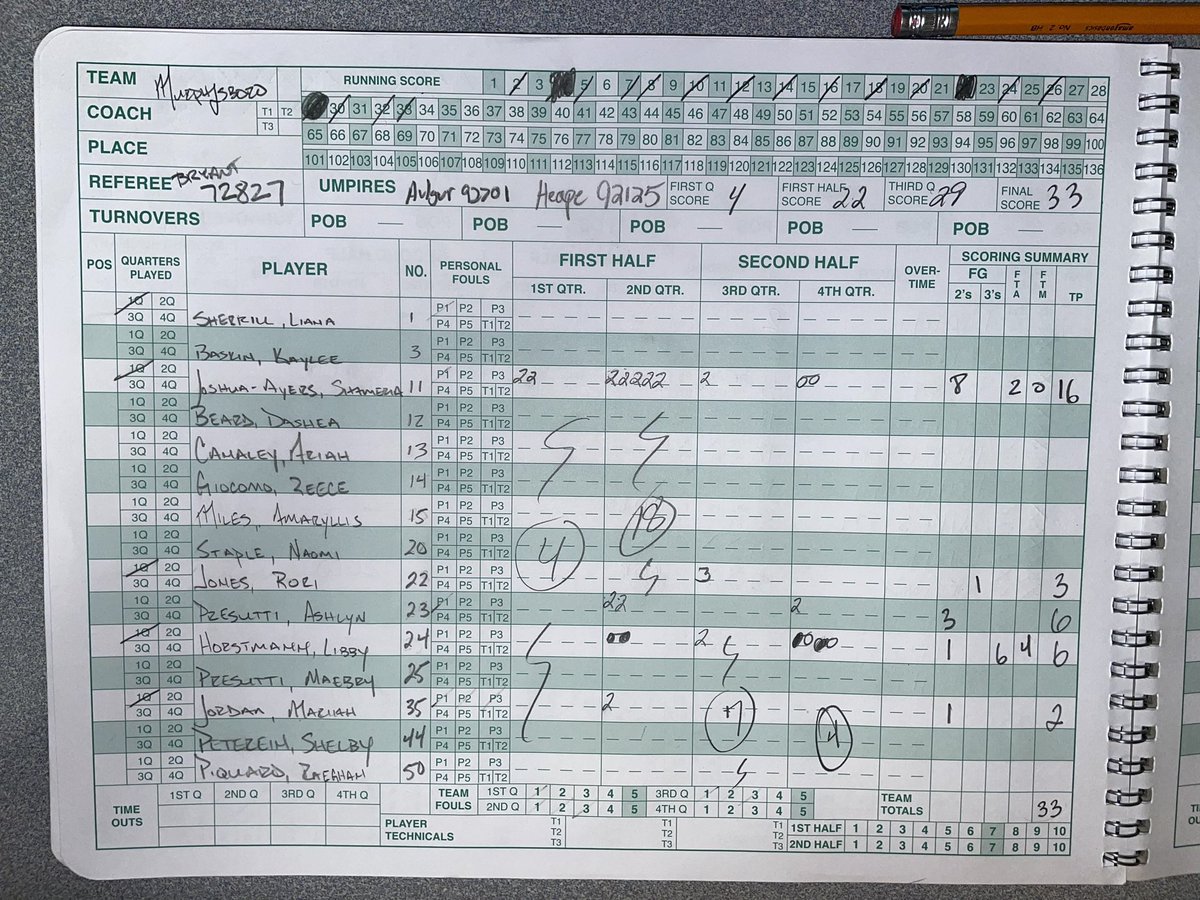 amazonbasics No. 2 HB
TEAM Murphysboro RUNNING SCORE 1 2 3 5 6 7 8 9 10 11 12 13 14 15 16 17 18 19 20 21 23 24 25 26 27 28
COACH T1 T2 T3 30 31 32 33 34 35 36 37 38 39 40 41 42 43 44 45 46 47 48 49 50 51 52 53 54 55 56 57 58 59 60 61 62 63 64
65 66 67 68 69 70 71 72 73 74 75 76 77 78 79 80 81 82 83 84 85 86 87 88 89 90 91 92 93 94 95 96 97 98 99 100
PLACE
101 102 103 104 105 106 107 108 109 110 111 112 113 114 115 116 117 118 119 120 121 122 123 124 125 126 127 128 129 130 131 132 133 134 135 136
REFEREE BRYANT 72827 UMPIRES 92701 Heape 92125 FIRST Q SCORE 4 FIRST HALF SCORE 22 THIRD Q SCORE 29 FINAL SCORE 33
TURNOVERS POB — POB — POB — POB — POB —
POS QUARTERS PLAYED PLAYER NO. PERSONAL FOULS FIRST HALF SECOND HALF OVER-TIME SCORING SUMMARY
1ST QTR. 2ND QTR. 3RD QTR. 4TH QTR. FG 2's 3's FTA FTM TP
1Q 2Q 3Q 4Q SHERRILL, LIANA 1 P1 P2 P3 P4 P5 T1 T2
1Q 2Q 3Q 4Q BASKIN, KAYLEE 3 P1 P2 P3 P4 P5 T1 T2
1Q 2Q 3Q 4Q JOSHUA-AYERS, SHAMERIA 11 P1 P2 P3 P4 P5 T1 T2 22 22222 2 00 8 2 0 16
1Q 2Q 3Q 4Q BEARD, DASHEA 12 P1 P2 P3 P4 P5 T1 T2
1Q 2Q 3Q 4Q CAMALEY, ARIAH 13 P1 P2 P3 P4 P5 T1 T2
1Q 2Q 3Q 4Q GIOCOMO, REECE 14 P1 P2 P3 P4 P5 T1 T2
1Q 2Q 3Q 4Q MILES, AMARYLLIS 15 P1 P2 P3 P4 P5 T1 T2 18
1Q 2Q 3Q 4Q STAPLE, NAOMI 20 P1 P2 P3 P4 P5 T1 T2 4
1Q 2Q 3Q 4Q JONES, RORI 22 P1 P2 P3 P4 P5 T1 T2 3 1 3
1Q 2Q 3Q 4Q PRESUTTI, ASHLYN 23 P1 P2 P3 P4 P5 T1 T2 22 2 3 6
1Q 2Q 3Q 4Q HORSTMANN, LIBBY 24 P1 P2 P3 P4 P5 T1 T2 2 1 6 4 6
1Q 2Q 3Q 4Q PRESUTTI, MAEBRY 25 P1 P2 P3 P4 P5 T1 T2
1Q 2Q 3Q 4Q JORDAN, MARIAH 35 P1 P2 P3 P4 P5 T1 T2 2 7 1 2
1Q 2Q 3Q 4Q PETEREIN, SHELBY 44 P1 P2 P3 P4 P5 T1 T2 4
1Q 2Q 3Q 4Q PIQUARD, RAEGHAN 50 P1 P2 P3 P4 P5 T1 T2
TIME OUTS 1ST Q 2ND Q 3RD Q 4TH Q TEAM FOULS 1ST Q 1 2 3 4 5 3RD Q 1 2 3 4 5 TEAM TOTALS 33
2ND Q 1 2 3 4 5 4TH Q 1 2 3 4 5
PLAYER TECHNICALS T1 T2 T3 T1 T2 T3 T1 T2 T3 1ST HALF 1 2 3 4 5 6 7 8 9 10
2ND HALF 1 2 3 4 5 6 7 8 9 10